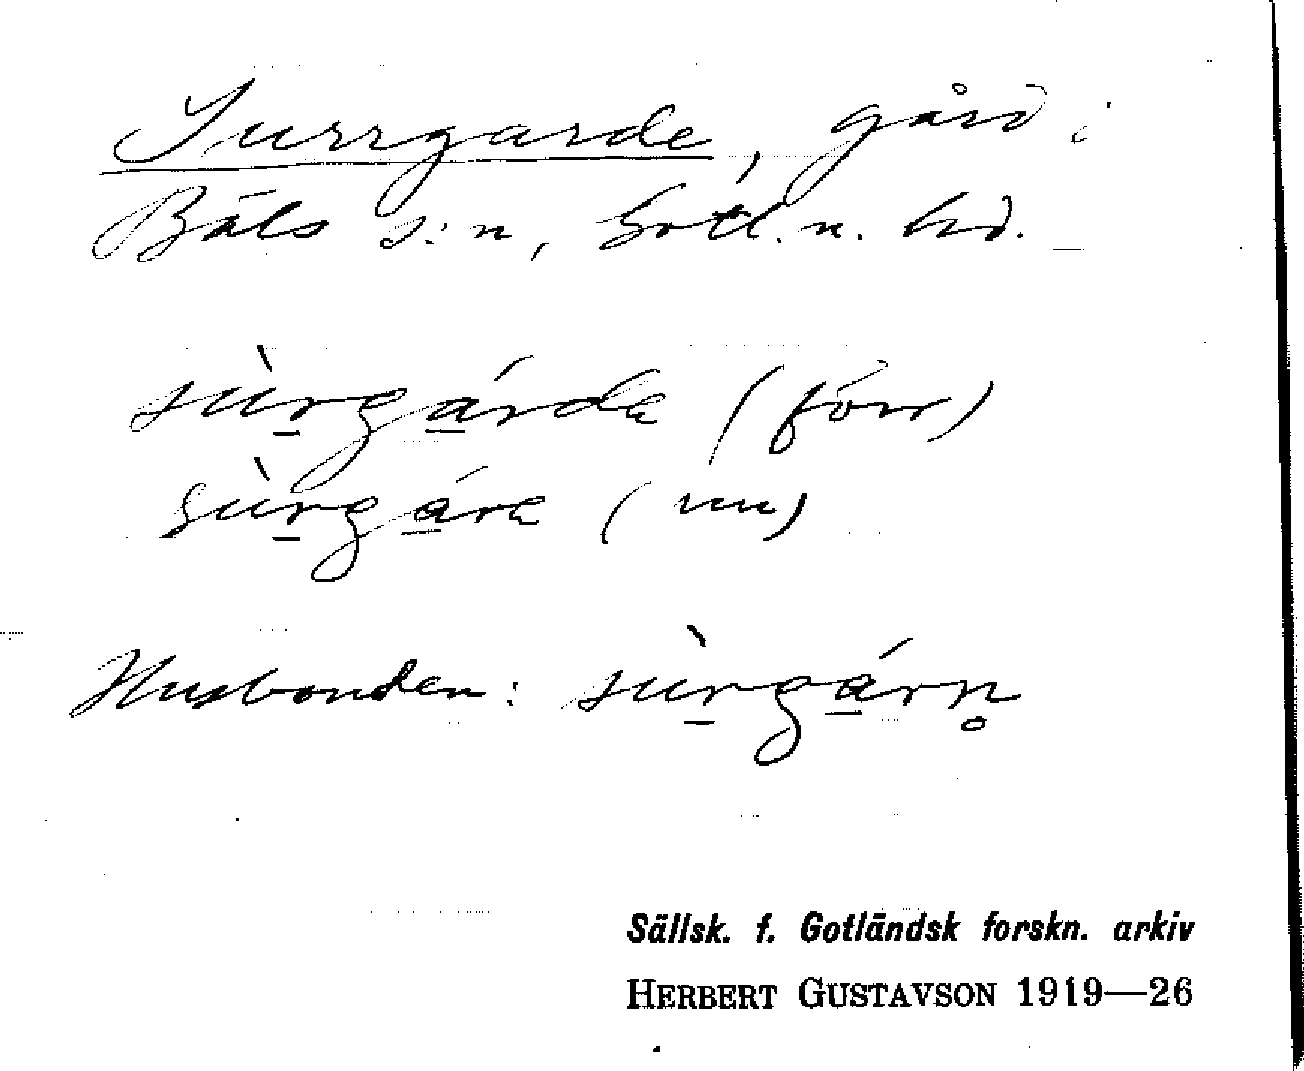 Surrgarde, gård i
Bäls s:n, Gotl. n. hd.
sùrgárda (förr)
sùrgára (nu)
Husbonden: sùrgárn̥
Sällsk. f. Gotländsk forskn. arkiv
HERBERT GUSTAVSON 1919—26